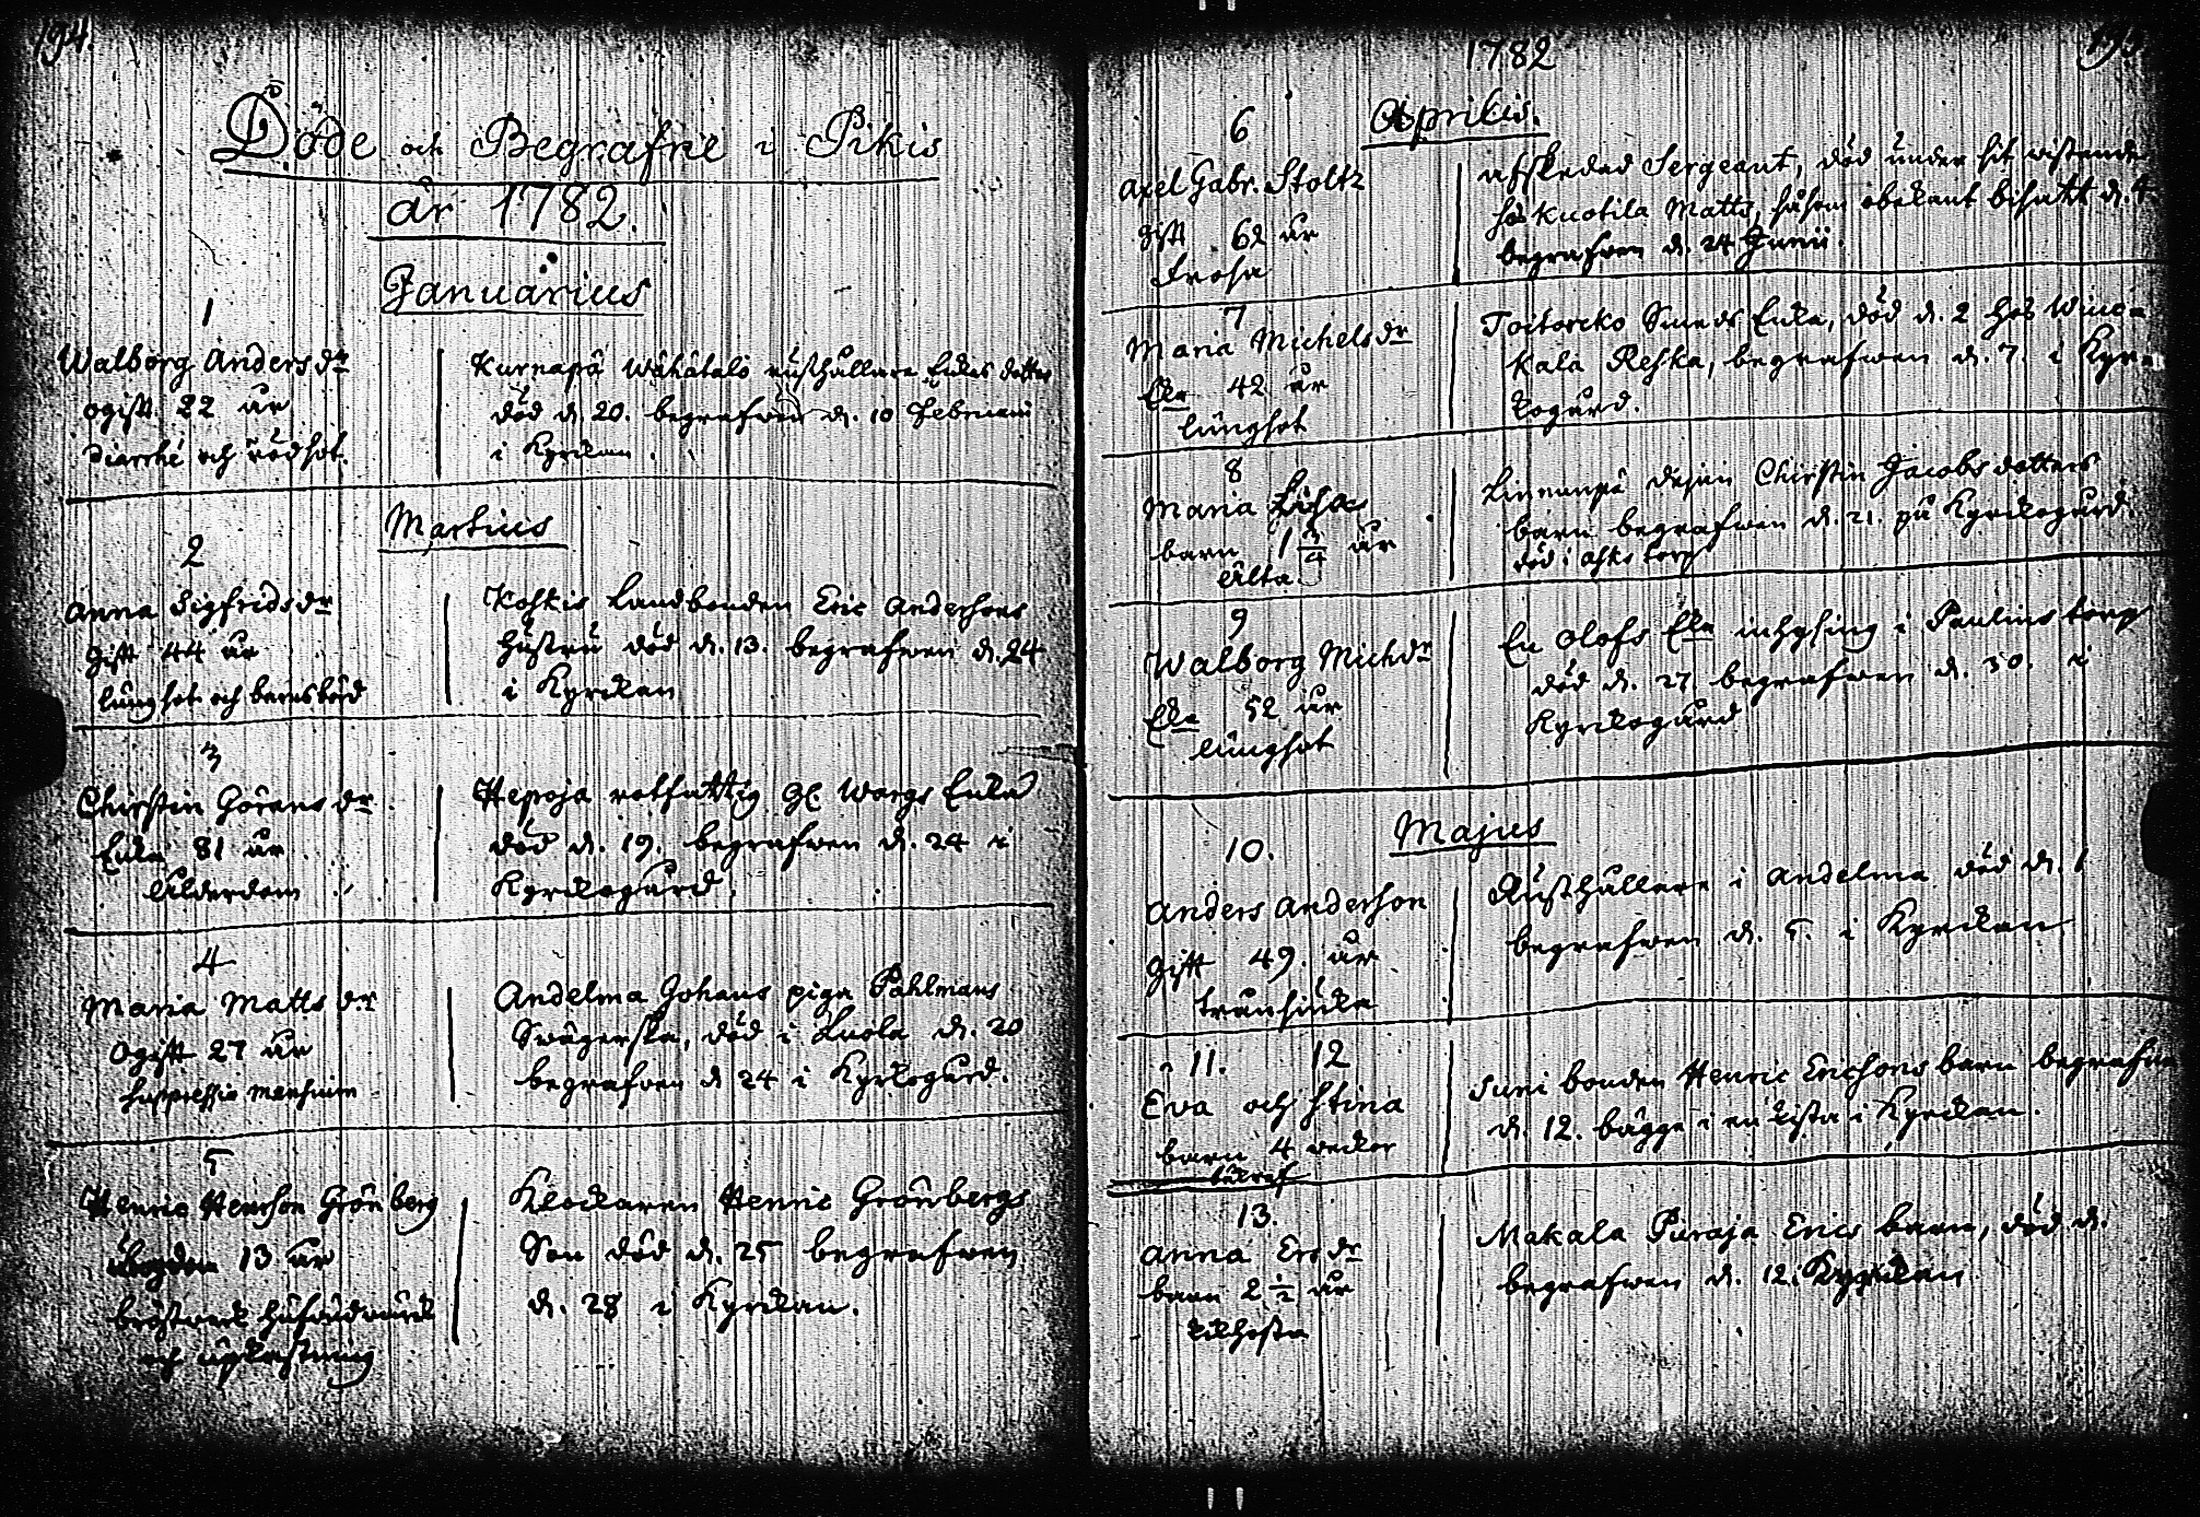 194.
Döde och Begrafne i Pikis
år 1782.
Januarius
1
Walborg Andersdr
ogift 22 år
Diarrhé och rödsot.
Kurnapä Wähätalo rusthållare Enkas dotter
död d. 20. begrafwen d. 10 Februarii
i Kyrckan.
Martius
2
Anna Sigfridsdr
gift 44 år
lungsot och barnsbörd
Koskis Landbonden Eric Andersons
hustru död d. 13. begrafwen d. 24
i Kyrckan
3
Chirstin Göransdr.
Enka 81 år
ålderdom
Hepoja rotfattig gl. Wargs Enka
död d. 19. begrafwen d. 24 i
Kyrckogård.
4
Maria Mattsdr
Ogift 27 år
suppressio mensium
Andelma Johans piga Pahlmans
Swägerska, död i Luola d. 20
begrafwen d 24 i Kyrkogård.
5
Henric Henrson Grönberg
13 år
bröstwerk hufwudwärk
och upkastning
Klockaren Henric Grönbergs
Son död d. 25 begrafwen
d. 28 i Kyrckan.
1782
195
Aprilis.
6
Axel Gabr. Stoltz
gift 62 år
frosa
afskedad Sergeant, död under sit wistande
hos Kuotila Matts, såsom obekant bisatt d. 4.
begrafwen d. 24 Junii.
7
Maria Michelsdr
Eka 42 år
lungsot
Toitorcko Smeds Enka, död d. 2 hos
kala Reska, begrafwen d. 7. i Kyrc
kogård.
8
Maria Lisa
barn 1 3/4 år
älta
Linnunpä Chirstin Jacobsdotters
barn begrafwen d. 21. på Kyrckogård.
död i torp
9
Walborg Michdr
Eka 52 år
lungsot
En Olofs Eka inhysing i Paulins torp
död d. 27 begrafwen d. 30. i
Kyrckogård
Majus
10.
Anders Anderson
gift 49. år
transiuka
Rusthållare i Andelma död d. 1
begrafwen d. 5. i Kyrckan
11. 12
Eva och Stina
barn 4 weckor
Suni bonden Henric Ericsons barn begrafne
d. 12. bägge i en kista i Kyrckan.
13.
Anna Ersdr
barn 2 1/2 år
kikhosta
Makala Puraja Erics barn, död d.
begrafwen d. 12. i Kyrckan